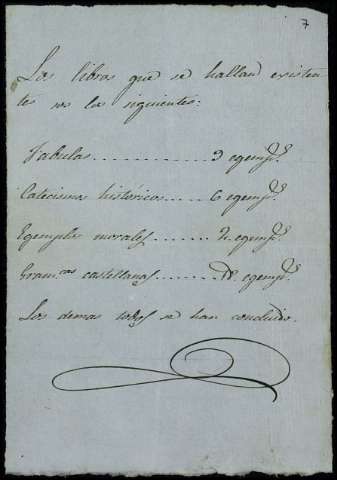 7
Los libros que se hallan existen
tes son los siguientes:
Fabulas............. 9 egemps.
Catecismos históricos..... 6 egemps.
Egemplos morales....... 2 egemps.
Gramcas castellanas....... egemps.
Los demas se han concluido.